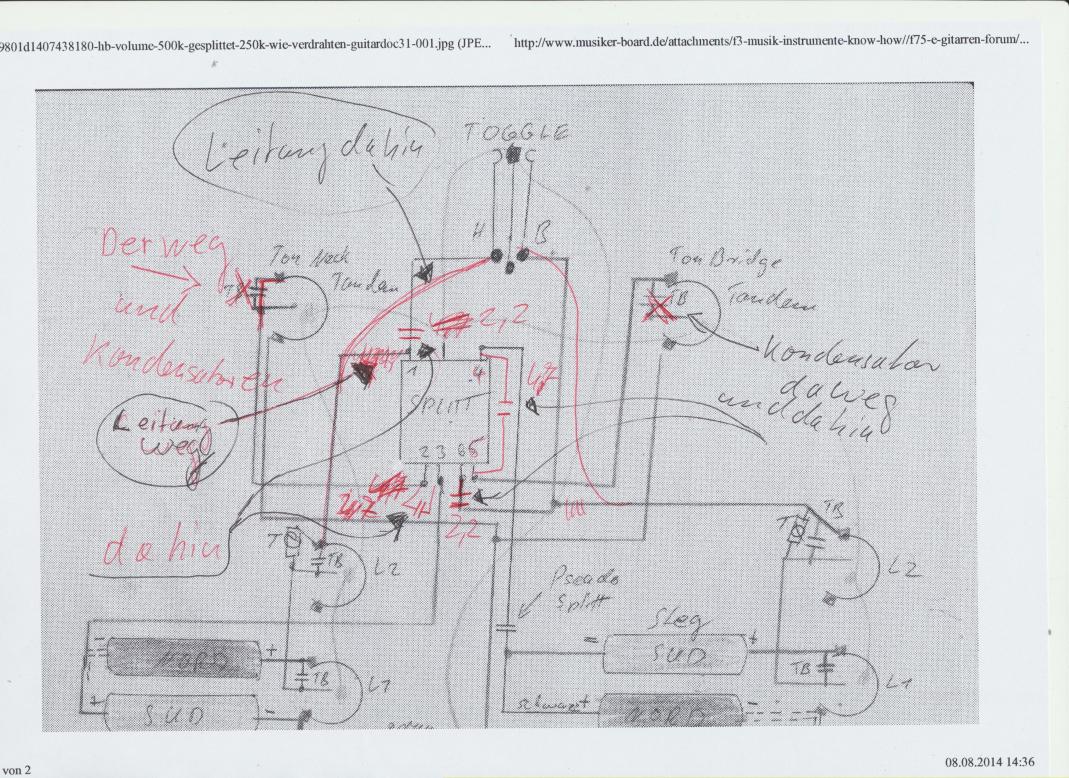 9801d1407438180-hb-volume-500k-gesplittet-250k-wie-verdrahten-guitardoc31-001.jpg (JPE...
http://www.musiker-board.de/attachments/f3-musik-instrumente-know-how//f75-e-gitarren-forum/...
Leitung dahin
TOGGLE
H B
Der weg
und
Kondensatoren
Ton Neck
Tandem
TB
Ton Bridge
Tandem
TB
2,2
Kondensator
da weg
und dahin
1 4
4,7
SPLITT
Leitung
weg
2 3 6 5
2,2
dahin
T
TB
L2
Pseudo
Splitt
T
TB
L2
NORD
+
TB
L1
+
SUD
-
Steg
SUD
+
TB
L1
schwarz
+
NORD
-
von 2
08.08.2014 14:36